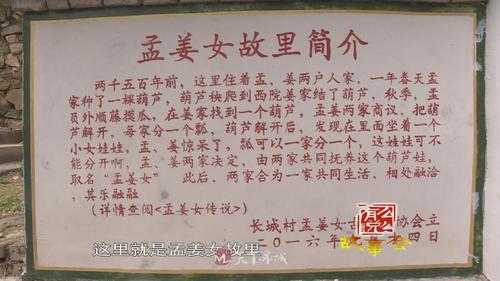 孟姜女故里简介
两千五百年前，这里住着孟、姜两户人家，一年春天孟
家种了一棵葫芦，葫芦秧爬到西院姜家结了葫芦，秋季，孟
员外顺藤摸瓜，在姜家找到一个葫芦，孟姜两家商议，把葫
芦解开，每家分一个瓢，葫芦解开后，发现在里面坐着一个
小女娃娃，孟、姜惊呆了，瓢可以一家分一个，这娃娃可不
能分开啊，孟、姜两家决定，由两家共同抚养这个葫芦娃，
取名“孟姜女” 此后、两家合为一家共同生活、相处融洽
、其乐融融
（详情查阅<孟姜女传说>）
长城村孟姜女古 协会立
二〇一六年 四日
这里就是孟姜女故里